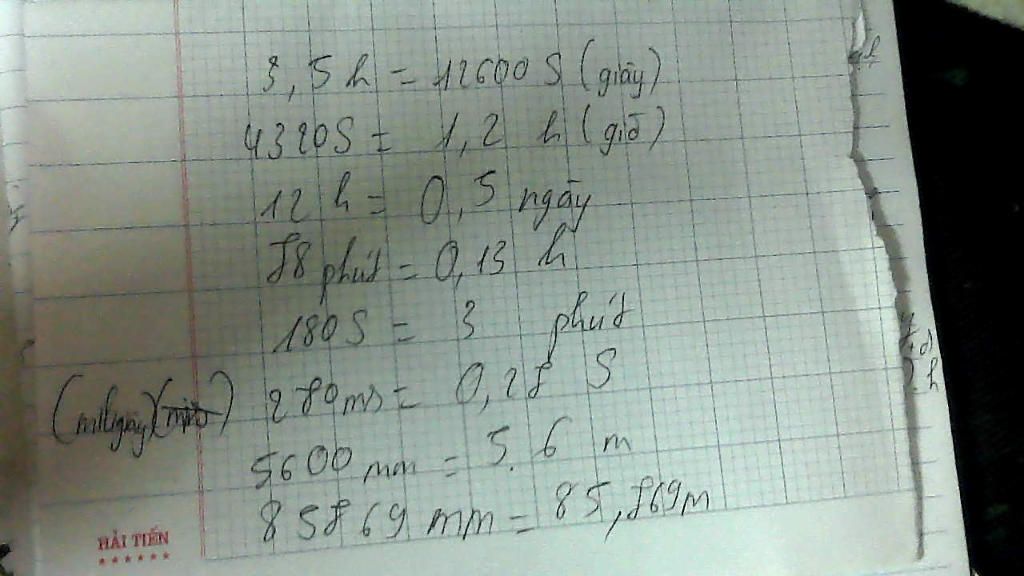 3,5 h = 12600 S (giây)
4320S = 1,2 h (giờ)
12 h = 0,5 ngày
78 phút = 0,13 h
180S = 3 phút
(miligiây) 280 ms = 0,28 S
5600 mm = 5.6 m
85869 mm = 85,869m
HẢI TIẾN